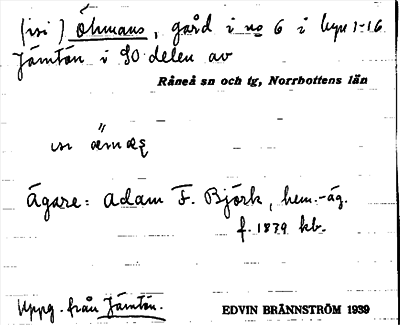 (isi) Öhmans, gård i no 6 i byn 1-16
Jämtön i SO delen av
Råneå sn och tg, Norrbottens län
Ägare: Adam F. Björk, hem.-äg.
f. 1879 kb.
Uppg. från Jämtön.
EDVIN BRÄNNSTRÖM 1939